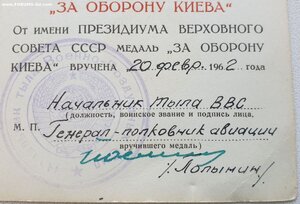 FORUM-SU.com
„ЗА ОБОРОНУ КИЕВА“
От имени ПРЕЗИДИУМА ВЕРХОВНОГО
СОВЕТА СССР МЕДАЛЬ „ЗА ОБОРОНУ
КИЕВА“ ВРУЧЕНА 20 февр. 1962 года
Начальник тыла ВВС
(должность, воинское звание и подпись лица,
М. П. Генерал-полковник авиации
вручившего медаль)
/Лопынин/